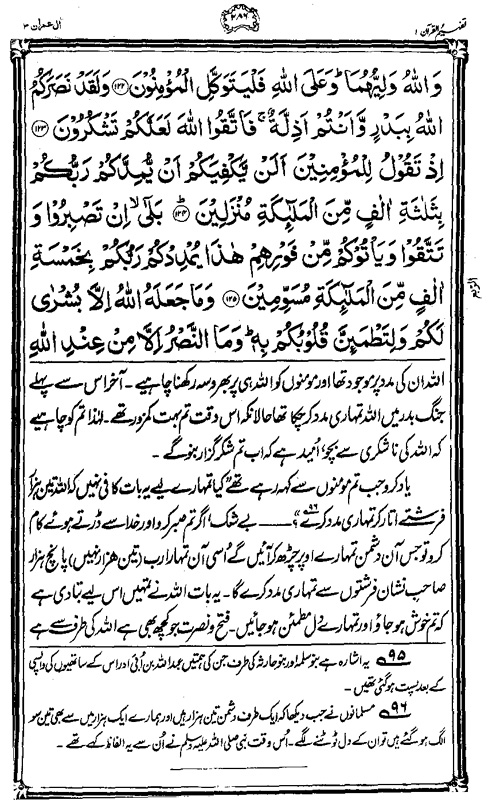 تفہیم القرآن ۱
۲۸۶
آل عمران ۳
وَاللّٰهُ وَلِيُّهُمَا ؕ وَعَلَى اللّٰهِ فَلْيَتَوَكَّلِ الْمُؤْمِنُوْنَ ﴿۱۲۲﴾ وَلَقَدْ نَصَرَكُمُ
اللّٰهُ بِبَدْرٍ وَّاَنْتُمْ اَذِلَّةٌ ۚ فَاتَّقُوا اللّٰهَ لَعَلَّكُمْ تَشْكُرُوْنَ ﴿۱۲۳﴾
اِذْ تَقُوْلُ لِلْمُؤْمِنِيْنَ اَلَنْ يَّكْفِيَكُمْ اَنْ يُّمِدَّكُمْ رَبُّكُمْ
بِثَلٰثَةِ اٰلٰفٍ مِّنَ الْمَلٰٓئِكَةِ مُنْزَلِيْنَ ﴿۱۲۴﴾ بَلٰٓى ۙ اِنْ تَصْبِرُوْا وَ
تَتَّقُوْا وَيَاْتُوْكُمْ مِّنْ فَوْرِهِمْ هٰذَا يُمْدِدْكُمْ رَبُّكُمْ بِخَمْسَةِ
اٰلٰفٍ مِّنَ الْمَلٰٓئِكَةِ مُسَوِّمِيْنَ ﴿۱۲۵﴾ وَمَا جَعَلَهُ اللّٰهُ اِلَّا بُشْرٰى
لَكُمْ وَلِتَطْمَئِنَّ قُلُوْبُكُمْ بِهٖ ؕ وَمَا النَّصْرُ اِلَّا مِنْ عِنْدِ اللّٰهِ
اللہ ان کی مدد پر موجود تھا اور مومنوں کو اللہ ہی پر بھروسہ رکھنا چاہیے۔ آخر اس سے پہلے
جنگ بدر میں اللہ تمہاری مدد کر چکا تھا حالانکہ اس وقت تم بہت کمزور تھے۔ لہٰذا تم کو چاہیے
کہ اللہ کی ناشکری سے بچو، اُمید ہے کہ اب تم شکر گزار بنو گے۔
یاد کرو جب تم مومنوں سے کہہ رہے تھے ”کیا تمہارے لیے یہ بات کافی نہیں کہ اللہ تین ہزار
فرشتے اُتار کر تمہاری مدد کرے؟“ ۹۶ ــــ بے شک، اگر تم صبر کرو اور خدا سے ڈرتے ہوئے کام
کرو تو جس آن دشمن تمہارے اوپر چڑھ کر آئیں گے اُسی آن تمہارا رب (تین ہزار نہیں) پانچ ہزار
صاحب نشان فرشتوں سے تمہاری مدد کرے گا۔ یہ بات اللہ نے تمہیں اس لیے بتا دی ہے
کہ تم خوش ہو جاؤ اور تمہارے دل مطمئن ہو جائیں۔ فتح و نصرت جو کچھ بھی ہے اللہ کی طرف سے ہے
۹۵ یہ اشارہ ہے بنو سلمہ اور بنو حارثہ کی طرف جن کی ہمتیں عبداللہ بن اُبی اور اس کے ساتھیوں کی واپسی
کے بعد پست ہو گئی تھیں۔
۹۶ مسلمانوں نے جب دیکھا کہ ایک طرف دشمن تین ہزار ہیں اور ہمارے ایک ہزار میں سے بھی تین سو
الگ ہو گئے ہیں تو ان کے دل ٹوٹنے لگے۔ اُس وقت نبی صلی اللہ علیہ وسلم نے اُن سے یہ الفاظ کہے تھے۔